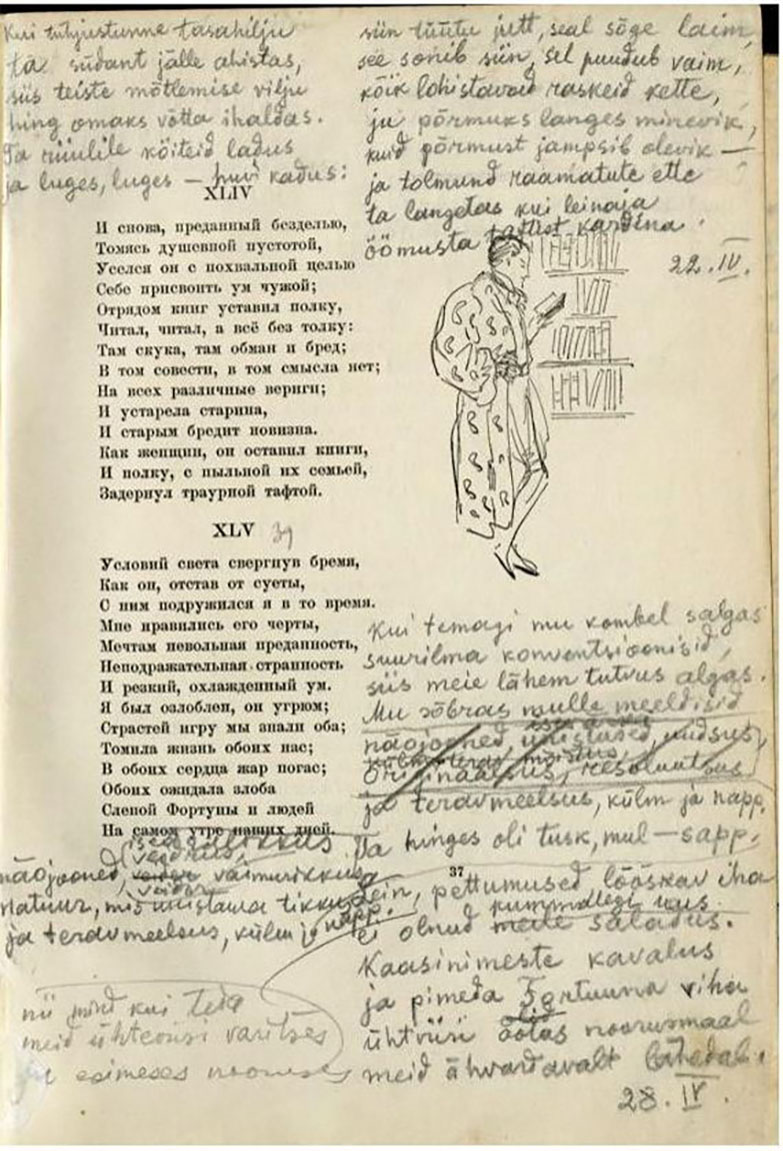 Kui tühjustunne tasahilju
ta südant jälle ahistas,
siis teiste mõtlemise vilju
hing omaks võtta ihaldas.
Ta riiulile köiteid ladus
ja luges, luges — huvi kadus:
siin tüütu jutt, seal sõge laim,
see sonib siin, sel puudub vaim,
kõik lohistavad raskeid kette,
ju põrmuks langes minevik,
kuid põrmust jampsib olevik —
ja tolmund raamatute ette
ta langetas kui leinaja
öömusta taftist kardina.
22. IV.
XLIV
И снова, преданный безделью,
Томясь душевной пустотой,
Уселся он с похвальной целью
Себе присвоить ум чужой;
Отрядом книг уставил полку,
Читал, читал, а всё без толку:
Там скука, там обман и бред;
В том совести, в том смысла нет;
На всех различные вериги;
И устарела старина,
И старым бредит новизна.
Как женщин, он оставил книги,
И полку, с пыльной их семьей,
Задернул траурной тафтой.
XLV
Условий света свергнув бремя,
Как он, отстав от суеты,
С ним подружился я в то время.
Мне нравились его черты,
Мечтам невольная преданность,
Неподражательная странность
И резкий, охлажденный ум.
Я был озлоблен, он угрюм;
Страстей игру мы знали оба;
Томила жизнь обоих нас;
В обоих сердца жар погас;
Обоих ожидала злоба
Слепой Фортуны и людей
На самом утре наших дней.
Kui temagi mu kombel salgas
suurilma konventsioonisid,
siis meie lähem tutvus algas.
Mu sõbras mulle meeldisid
näojooned, unistused, uudsus,
originaalsus, resoluutsus
ja teravmeelsus, külm ja napp.
Ta hinges oli tusk, mul — sapp.
37
näojooned, vaimurikkus,
natuur, mis unistama tikkus
ja teravmeelsus, külm ja napp.
pettumused lõõskav iha
ei olnud meile saladus.
Kaasinimeste kavalus
ja pimeda Fortuuna viha
ühtviisi ootas noorusmaal
meid ähvardavalt lähedal.
28. IV.
nii mind kui teda
meid ühteviisi varitses
esimeses nooruses